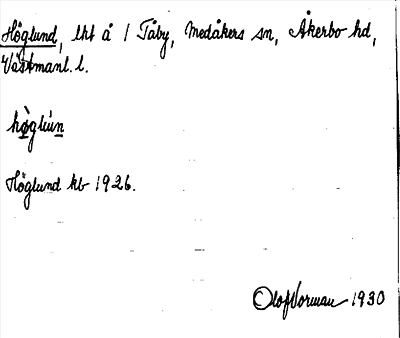 Höglund, lht å 1 Täby, Medåkers sn, Åkerbo hd,
Västmanl. l.
hø̀glún
Höglund kb 1926.
Olof Norman 1930